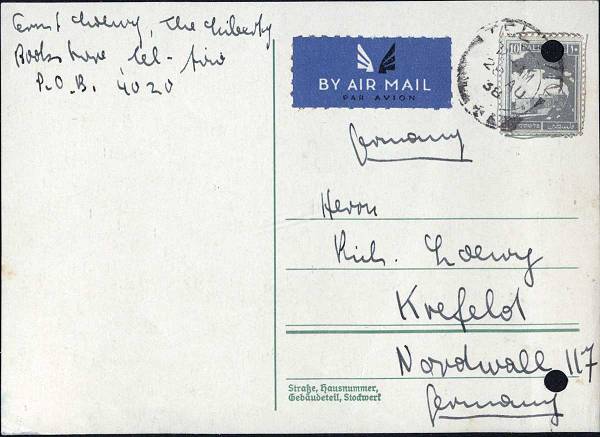 Ernst Loewy, The Liberty
Bookstore Tel-Aviv
P.O.B. 4020
BY AIR MAIL
PAR AVION
Germany
Herrn
Rich. Loewy
Krefeld
Nordwall 117
Germany
Straße, Hausnummer,
Gebäudeteil, Stockwerk
TEL
AU
38
10
PALE